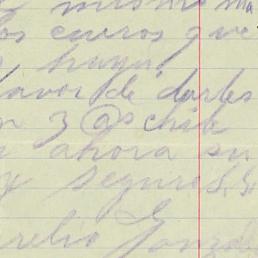 mismo ma
los cueros que
haya
favor de darles
3 @s chile
ahora su
y seguro S. S.
relio Gonza